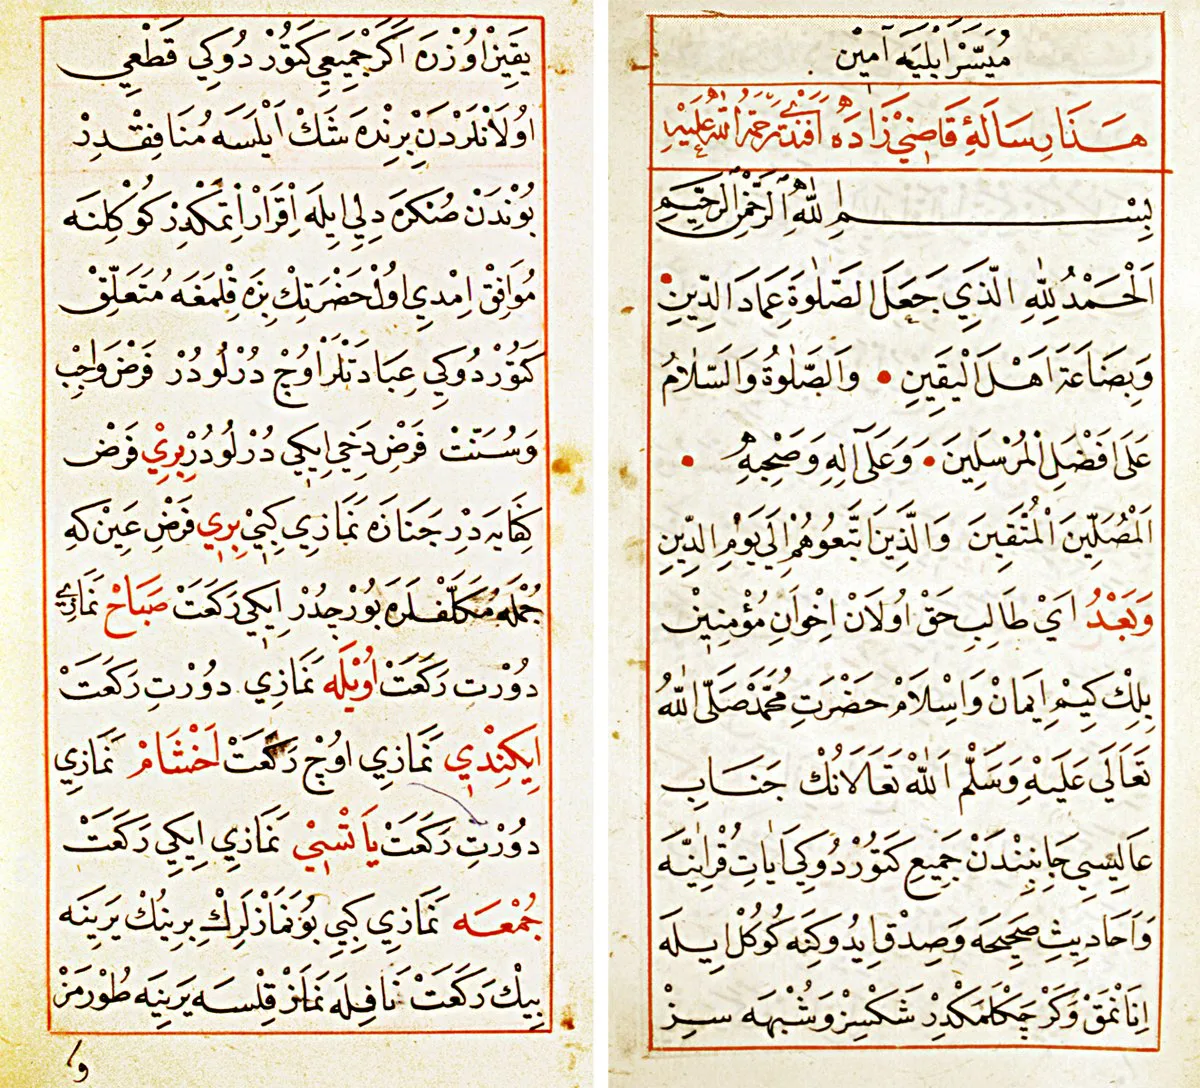 مُيَسَّرْ اَيْلِيَه آمِين
هٰذَا رِسَالَهِٔ قَاضِي زَادَه اَفَنْدِي رَحْمَةُ اللّٰهِ عَلَيْهِ
بِسْمِ اللّٰهِ الرَّحْمٰنِ الرَّحِيمِ
اَلْحَمْدُ لِلّٰهِ الَّذِي جَعَلَ الصَّلٰوةَ عِمَادَ الدِّينِ
وَبِضَاعَةَ اَهْلِ الْيَقِينِ • وَالصَّلٰوةُ وَالسَّلَامُ
عَلَى اَفْضَلِ الْمُرْسَلِينَ • وَعَلَى آلِهِ وَصَحْبِهِ •
الْمُصَلِّينَ الْمُتَّقِينَ وَالَّذِينَ اتَّبَعُوهُمْ اِلَى يَوْمِ الدِّينِ
وَبَعْدُ اَيْ طَالِبِ حَقْ اُولَانْ اِخْوَانِ مُؤْمِنِينْ
بِلِكْ كِيمْ اِيمَانْ وَاِسْلَامْ حَضْرَتِ مُحَمَّدْ صَلَّى اللّٰهُ
تَعَالَى عَلَيْهِ وَسَلَّمْ اَللّٰهْ تَعَالَانُكْ جَنَابِ
عَالِيسِي جَانِبِنْدَنْ جَمِيعِ كَتُوْرْدُوكِي اَيَاتِ قُرْاٰنِيَّه
وَاَحَادِيثِ صَحِيحَه وَصِدْقِ اِيدُوكِنَه كُوكُلْ اِيلَه
اِنَانْمَقْ وَكَرْچَكْلَمَكْدِرْ شَكْسِزْ وَشُبْهَه سِزْ
يَقِينْ اُوزْرَه اَكَرْ جَمِيعِي كَتُوْرْدُوكِي قَطْعِي
اُولَانْلَرْدَنْ بِرِنْدَه شَكْ اَيْلَسَه مُنَافِقْدِرْ
بُونْدَنْ صُنْكَرَه دِلِي اِيلَه اِقْرَارْ اِتْمَكْدِرْ كُوكْلِنَه
مُوَافِقْ اِمْدِي اُولْ حَضْرَتِكْ بِزَه قِلْمَغَه مُتَعَلِّقْ
كَتُوْرْدُوكِي عِبَادَتْلَرْ اُوچْ دُرْلُودُرْ فَرْضْ وَاجِبْ
وَسُنَّتْ فَرْضْ دَخِي اِيكِي دُرْلُودُرْ بِرِيْ فَرْضْ
كِفَايَه دِرْ جَنَازَه نَمَازِي كِبِيْ بِرِي فَرْضِ عَيْنْ كِه
جُمْلَه مُكَلَّفْلَرَه بُورْجْدُرْ اِيكِي رَكَعَتْ صَبَاحْ نَمَازِي
دُوْرْتِ رَكَعَتْ اُوْيْلَه نَمَازِي دُوْرْتِ رَكَعَتْ
اِيكِنْدِي نَمَازِي اُوچْ رَكَعَتْ اَخْشَامْ نَمَازِي
دُوْرْتِ رَكَعَتْ يَاتْسِيْ نَمَازِي اِيكِي رَكَعَتْ
جُمْعَه نَمَازِي كِبِي بُو نَمَازْلَرِكْ بِرِينُكْ يَرِينَه
بِيكْ رَكَعَتْ نَافِلَه نَمَازْ قِلْسَه يَرِينَه طُوْرْمَزْ